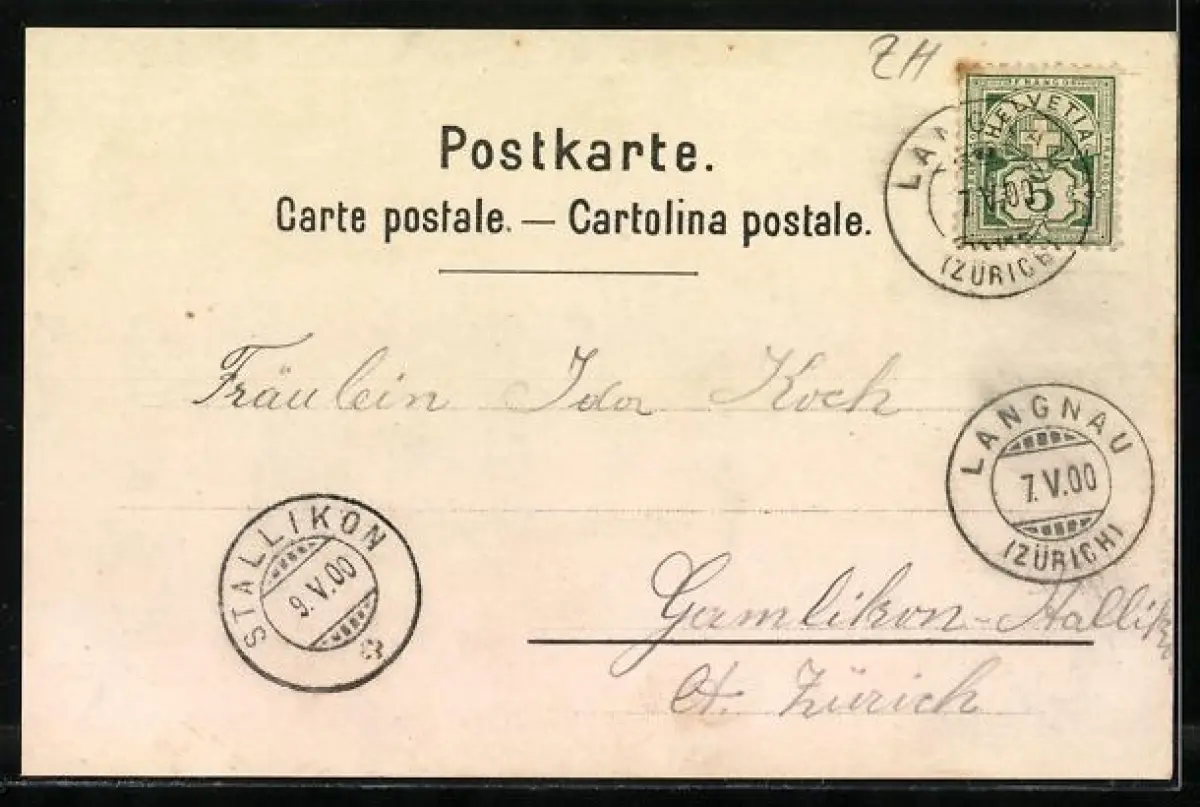 ZH
FRANCO
HELVETIA
5
LANG
7.V.00
(ZÜRICH)
Postkarte.
Carte postale. — Cartolina postale.
Fräulein Ida Koch
LANGNAU
7.V.00
(ZÜRICH)
STALLIKON
9.V.00
Gamlikon-Stallikon
Ct. Zürich